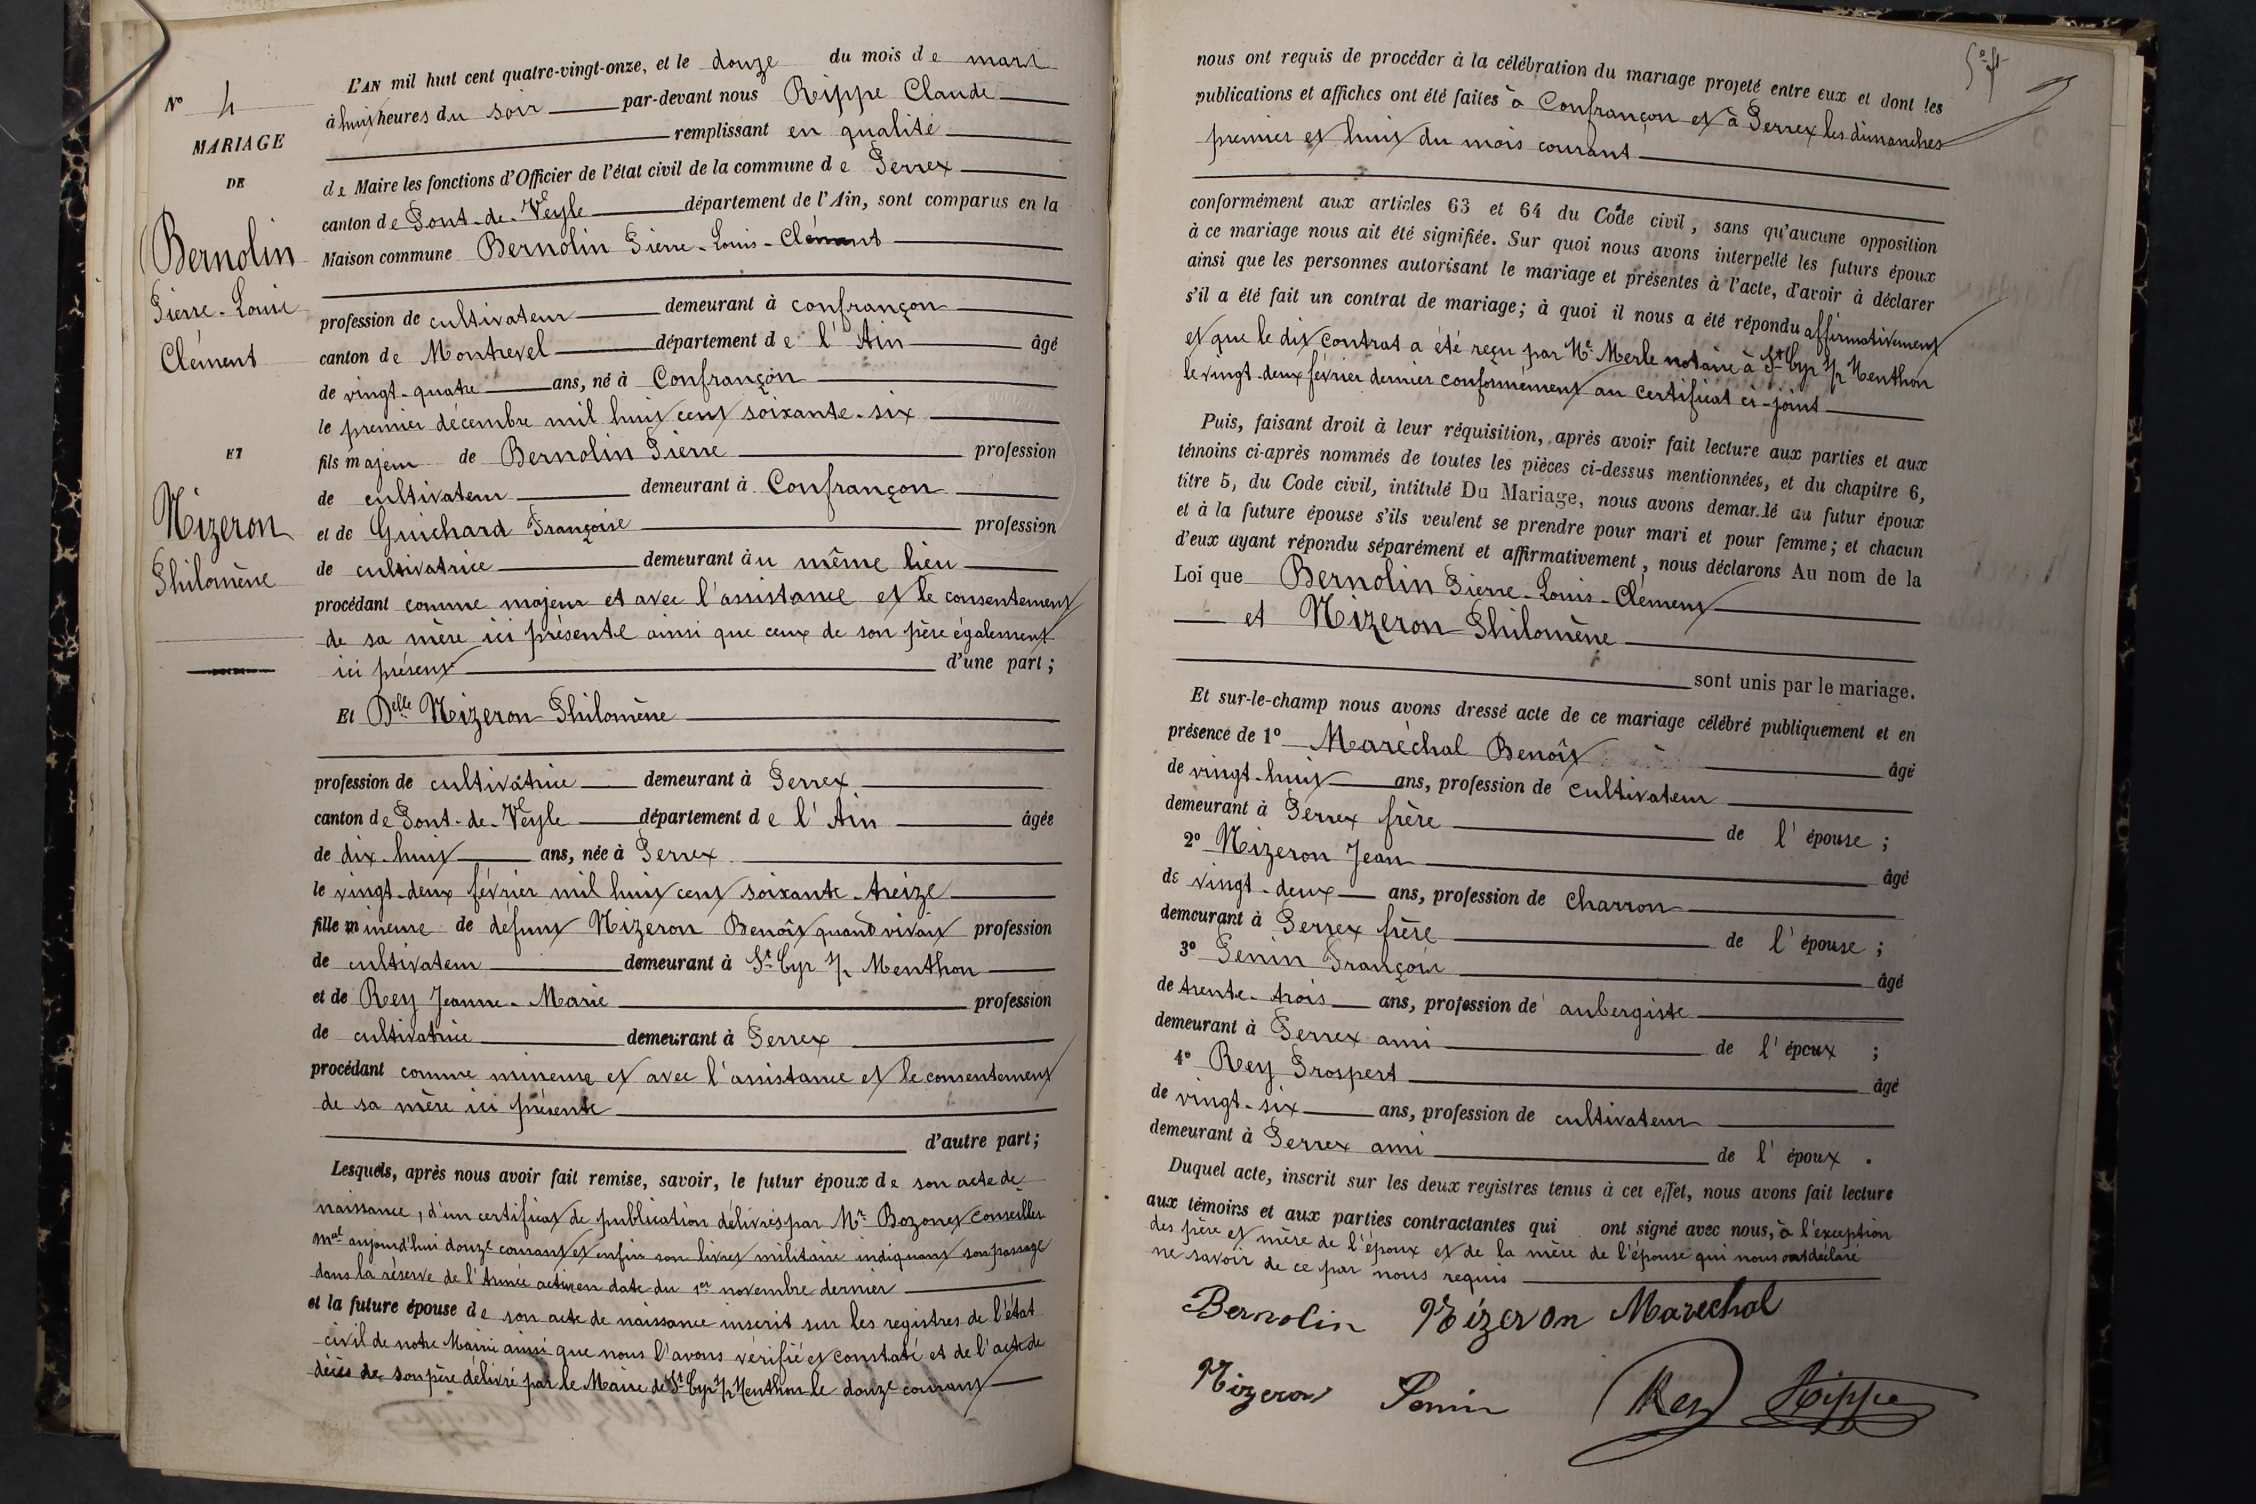 N° 4
MARIAGE
DE
Bernolin
Pierre-Louis
Clément
ET
Mizeron
Philomène
L'AN mil huit cent quatre-vingt-onze, et le douze du mois de mars
à huit heures du soir par-devant nous Rippe Claude
remplissant en qualité
de Maire les fonctions d'Officier de l'état civil de la commune de Perrex
canton de Pont-de-Veyle département de l'Ain, sont comparus en la
Maison commune Bernolin Pierre-Louis-Clément
profession de cultivateur demeurant à Confrançon
canton de Montrevel département de l'Ain âgé
de vingt-quatre ans, né à Confrançon
le premier décembre mil huit cent soixante-six
fils majeur de Bernolin Pierre profession
de cultivateur demeurant à Confrançon
et de Guichard Françoise profession
de cultivatrice demeurant àu même lieu
procédant comme majeur et avec l'assistance et le consentement
de sa mère ici présente ainsi que ceux de son père également
ici présent d'une part;
Et Delle Mizeron Philomène
profession de cultivatrice demeurant à Perrex
canton de Pont-de-Veyle département de l'Ain âgée
de dix-huit ans, née à Perrex
le vingt-deux février mil huit cent soixante-treize
fille mineure de défunt Mizeron Benoît quand vivait profession
de cultivateur demeurant à St Cyr s/r Menthon
et de Rey Jeanne-Marie profession
de cultivatrice demeurant à Perrex
procédant comme mineure et avec l'assistance et le consentement
de sa mère ici présente
d'autre part;
Lesquels, après nous avoir fait remise, savoir, le futur époux de son acte de
naissance, d'un certificat de publication délivrés par Mr Bozonet Conseiller
mal aujourd'hui douze courant et enfin son livret militaire indiquant son passage
dans la réserve de l'Armée active en date du 1er novembre dernier
et la future épouse de son acte de naissance inscrit sur les registres de l'état
civil de notre Mairie ainsi que nous l'avons vérifié et constaté et de l'acte de
décès de son père délivré par le Maire de St Cyr s/r Menthon le douze courant
nous ont requis de procéder à la célébration du mariage projeté entre eux et dont les
publications et affiches ont été faites à Confrançon et à Perrex les dimanches
premier et huit du mois courant
conformément aux articles 63 et 64 du Code civil, sans qu'aucune opposition
à ce mariage nous ait été signifiée. Sur quoi nous avons interpellé les futurs époux
ainsi que les personnes autorisant le mariage et présentes à l'acte, d'avoir à déclarer
s'il a été fait un contrat de mariage; à quoi il nous a été répondu affirmativement
et que le dit contrat a été reçu par Me Merle notaire à St Cyr s/r Menthon
le vingt-deux février dernier conformément au certificat ci-joint
Puis, faisant droit à leur réquisition, après avoir fait lecture aux parties et aux
témoins ci-après nommés de toutes les pièces ci-dessus mentionnées, et du chapitre 6,
titre 5, du Code civil, intitulé Du Mariage, nous avons demandé au futur époux
et à la future épouse s'ils veulent se prendre pour mari et pour femme; et chacun
d'eux ayant répondu séparément et affirmativement, nous déclarons Au nom de la
Loi que Bernolin Pierre-Louis-Clément
et Mizeron Philomène
sont unis par le mariage.
Et sur-le-champ nous avons dressé acte de ce mariage célébré publiquement et en
présence de 1° Maréchal Benoît âgé
de vingt-huit ans, profession de cultivateur
demeurant à Perrex frère de l'épouse;
2° Mizeron Jean âgé
de vingt-deux ans, profession de charron
demeurant à Perrex frère de l'épouse;
3° Penin François âgé
de trente-trois ans, profession de aubergiste
demeurant à Perrex ami de l'époux;
4° Rey Prospert âgé
de vingt-six ans, profession de cultivateur
demeurant à Perrex ami de l'époux.
Duquel acte, inscrit sur les deux registres tenus à cet effet, nous avons fait lecture
aux témoins et aux parties contractantes qui ont signé avec nous, à l'exception
des père et mère de l'époux et de la mère de l'épouse qui nous ont déclaré
ne savoir de ce par nous requis
Bernolin Mizeron Marechal
Mizeron Penin Rey Rippe